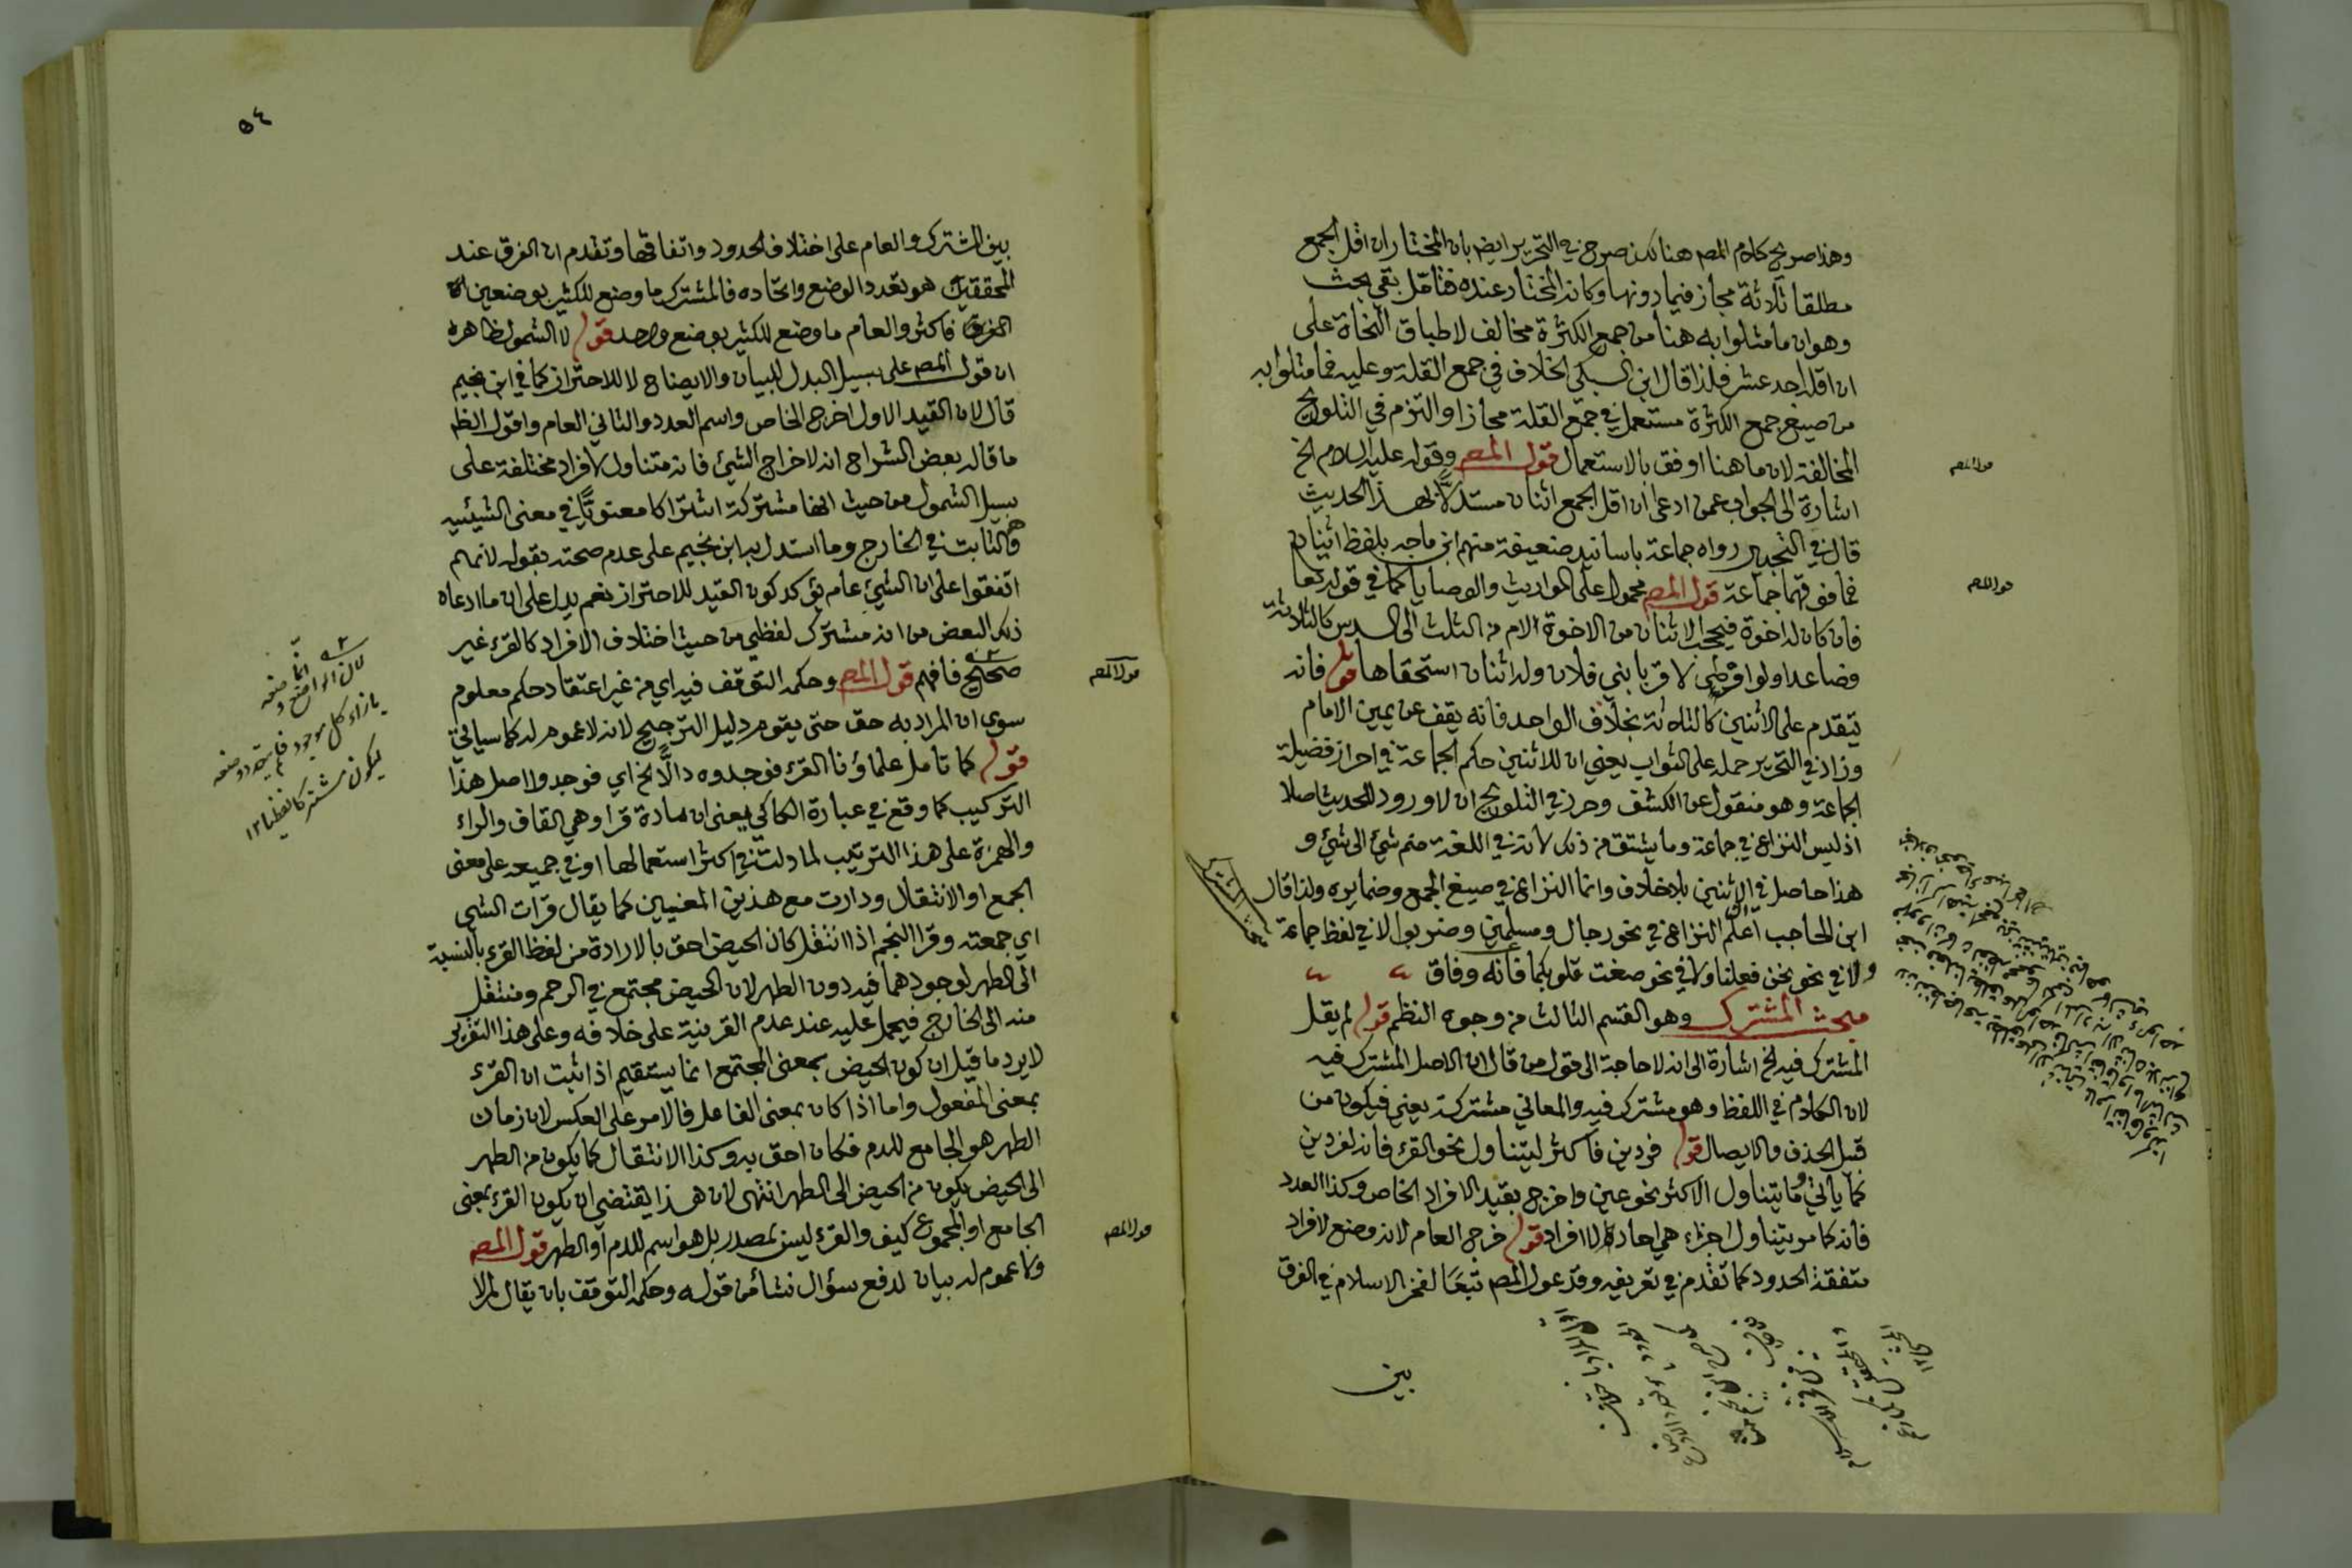 وهذا صريح كلام المصـ هنا لكن صرح في التحرير ايضا بان المختار ان اقل الجمع
مطلقا ثلاثة مجاز فيما دونها وكانه المختار عنده فتأمل بقي بحث
وهو ان ما مثلوا به هنا من جمع الكثرة مخالف لاطباق النحاة على
ان اقله احد عشر فلذا قال ابن السبكي الخلاف في جمع القلة وعليه فما مثلوا به
من صيغ جمع الكثرة مستعمل في جمع القلة مجازا والتزم في التلويح
المخالفة لان ما هنا اوفق بالاستعمال قول المصـ وقوله عليه السلام الخ
اشارة الى الجواب عمن ادعى ان اقل الجمع اثنان مستدلا بهذا الحديث
قال في التحرير رواه جماعة باسانيد ضعيفة منهم ابن ماجه بلفظ اثنان
فما فوقهما جماعة قول المصـ محمول على المواريث والوصايا كما في قوله تعا
فان كان له اخوة فيحجب الاثنان من الاخوة الام من الثلث الى السدس كالثلاثة
فصاعدا ولو اوصى لاقربا بني فلان وله اثنان استحقاها قوله فانه
يتقدم على الاثنين كالثلاثة بخلاف الواحد فانه يقف عن يمين الامام
وزاد في التحرير حمله على الثواب يعني ان للاثنين حكم الجماعة في احراز فضيلة
الجماعة وهو منقول عن الكشف وحرر في التلويح ان لا ورود للحديث اصلا
اذ ليس النزاع في جماعة وما يشتق من ذلك لانه في اللغة ضم شئ الى شئ و
هذا حاصل في الاثنين بلا خلاف وانما النزاع في صيغ الجمع وضمايره ولذا قال
ابن الحاجب اعلم ان النزاع في نحو رجال ومسلمين وضربوا لا في لفظ جماعة
ولا في نحو نحن فعلنا ولا في نحو صغت قلوبكما فانه وفاق
مبحث المشترك وهو القسم الثالث من وجوه النظم قوله لم يقل
المشترك فيه الخ اشارة الى انه لا حاجة الى قول من قال ان الاصل المشترك فيه
لان الكلام في اللفظ وهو مشترك فيه والمعاني مشتركة يعني فيكون من
قبيل الحذف والايصال قوله فردين فاكثر ليتناول نحو القرء فانه لفردين
كما ياتي وما يتناول الاكثر نحو عين واخرج بقيد الافراد الخاص وكذا العدد
فانه كما مر يتناول اجزاء هي احاده لا افراد قوله خرج العام لانه وضع لافراد
متفقة الحدود كما تقدم في تعريفه وقد عول المصـ تبعا لفخر الاسلام في الفرق
بين
قول المصـ
قول المصـ
مبحث المشترك
٥٤
بين المشترك والعام على اختلاف الحدود واتفاقها وتقدم ان الفرق عند
المحققين هو تعدد الوضع واتحاده فالمشترك ما وضع للكثير بوضعين
فاكثر والعام ما وضع للكثير بوضع واحد قوله لا الشمول ظاهره
ان قول المصـ على سبيل البدل للبيان والايضاح لا للاحتراز كما في ابن نجيم
قال لان القيد الاول اخرج الخاص واسم العدد والثاني العام واقول الظ
ما قاله بعض الشراح انه لاخراج الشئ فانه متناول لافراد مختلفة على
سبيل الشمول من حيث انها مشتركة اشتراكا معنويا في معنى الشيئيه
وهو الثابت في الخارج وما استدل به ابن نجيم على عدم صحته بقوله لانهم
اتفقوا على ان الشئ عام يؤكد كون القيد للاحتراز نعم يدل على ان ما ادعاه
ذلك البعض من انه مشترك لفظي من حيث اختلاف الافراد كالقرء غير
صحيح فافهم قول المصـ وحكمه التوقف فيه اي من غير اعتقاد حكم معلوم
سوى ان المراد به حق حتى يقوم دليل الترجيح لانه لا عموم له كما سياتي
قوله كما تامل علماؤنا القرء فوجدوه دالا الخ اي فوجدوا اصل هذا
التركيب كما وقع في عبارة الكاكي يعني ان مادة قرا وهي القاف والراء
والهمزة على هذا الترتيب لما دلت في اكثر استعمالها او في جميعه على معنى
الجمع او الانتقال ودارت مع هذين المعنيين كما يقال قرات الشي
اي جمعته وقرا النجم اذا انتقل كان الحيض احق بالارادة من لفظ القرء بالنسبة
الى الطهر لوجودهما فيه دون الطهر لان الحيض مجتمع في الرحم ومنتقل
منه الى الخارج فيحمل عليه عند عدم القرينة على خلافه وعلى هذا التقرير
لا يرد ما قيل ان كون الحيض بمعنى المجتمع انما يستقيم اذا ثبت ان القرء
بمعنى المفعول واما اذا كان بمعنى الفاعل فالامر على العكس لان زمان
الطهر هو الجامع للدم فكان احق به وكذا الانتقال كما يكون من الطهر
الى الحيض يكون من الحيض الى الطهر انتهى لان هذا يقتضي ان يكون القرء بمعنى
الجامع او المجموع كيف والقرء ليس بمصدر بل هو اسم للدم او الطهر قول المصـ
ولا عموم له بيان لدفع سؤال نشأ من قوله وحكمه التوقف بان يقال لم لا
قول المصـ
قول المصـ
بازاء كل موجود فلم يتعدد وضعه
ليكون مشتركا لفظيا ١٢